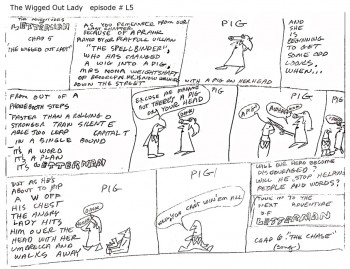 The Wigged Out Lady episode # L5
THE ADVENTURES
of LETTERMAN
CHAP 5
"THE WIGGED OUT LADY"
AS YOU REMEMBER FROM OUR
LAST
BECAUSE OF A PRANK
PLAYED BY OUR PLAYFULL VILLAIN
"THE SPELLBINDER",
WHO HAS CHANGED
A WIG INTO A PIG,
MRS NONA WEIGHTSHAFT
OF
DOWN THE STREET
WITH A PIG ON HER HEAD
PIG
AND
SHE
IS
BEGINNING
TO GET
SOME ODD
LOOKS,
WHEN...
FROM OUT OF A
PHONE BOOTH STEPS
"FASTER THAN A ROLLING O
STRONGER THAN SILENT E
ABLE TOO LEAP CAPITAL T
IN A SINGLE BOUND
IT'S A WORD
IT'S A PLAN
IT'S LETTERMAN
EXCUSE ME MADAM
BUT THERE'S A PIG
ON YOUR HEAD
A PIG?
PIG
BUT AS HE'S
ABOUT TO RIP
A W OFF
HIS CHEST
THE ANGRY
LADY HITS
HIM OVER THE
HEAD WITH HER
UMBRELLA AND
WALKS AWAY
PIG
PIG!
WELL YOU CAN'T WIN 'EM ALL
WILL OUR HERO BECOME
DISCOURAGED?
WILL HE STOP HELPING
PEOPLE AND WORDS?
TUNE IN TO THE
NEXT ADVENTURE
OF
LETTERMAN
CHAP 6 "THE CHASE"